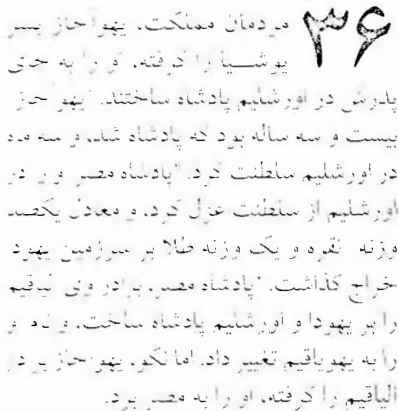 ۳۶ مردمان مملکت، یهوآحاز پسر
یوشیا را گرفته، او را به جای
پدرش در اورشلیم پادشاه ساختند. یهوآحاز
بیست و سه ساله بود که پادشاه شد، و سه ماه
در اورشلیم سلطنت کرد. پادشاه مصر وی را در
اورشلیم از سلطنت عزل کرد، و معادل یکصد
وزنه نقره و یک وزنه طلا بر سرزمین یهودا
خراج گذاشت. پادشاه مصر، برادر وی الیاقیم
را بر یهودا و اورشلیم پادشاه ساخت، و نام او
را به یهویاقیم تغییر داد. اما نکو، یهوآحاز برادر
الیاقیم را گرفته، او را به مصر برد.